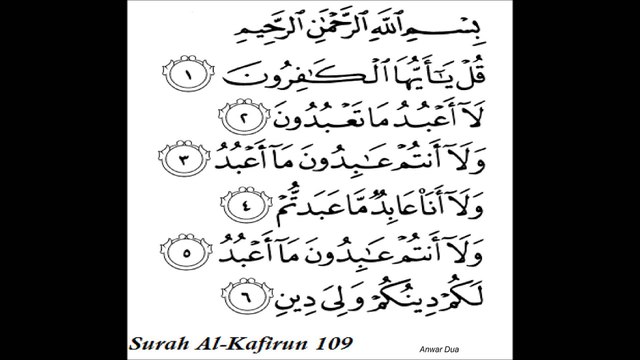 بِسْمِ اللَّهِ الرَّحْمَٰنِ الرَّحِيمِ
قُلْ يَٰٓأَيُّهَا الْكَٰفِرُونَ ١
لَآ أَعْبُدُ مَا تَعْبُدُونَ ٢
وَلَآ أَنتُمْ عَٰبِدُونَ مَآ أَعْبُدُ ٣
وَلَآ أَنَا۠ عَابِدٌ مَّا عَبَدتُّمْ ٤
وَلَآ أَنتُمْ عَٰبِدُونَ مَآ أَعْبُدُ ٥
لَكُمْ دِينُكُمْ وَلِىَ دِينِ ٦
Surah Al-Kafirun 109
Anwar Dua